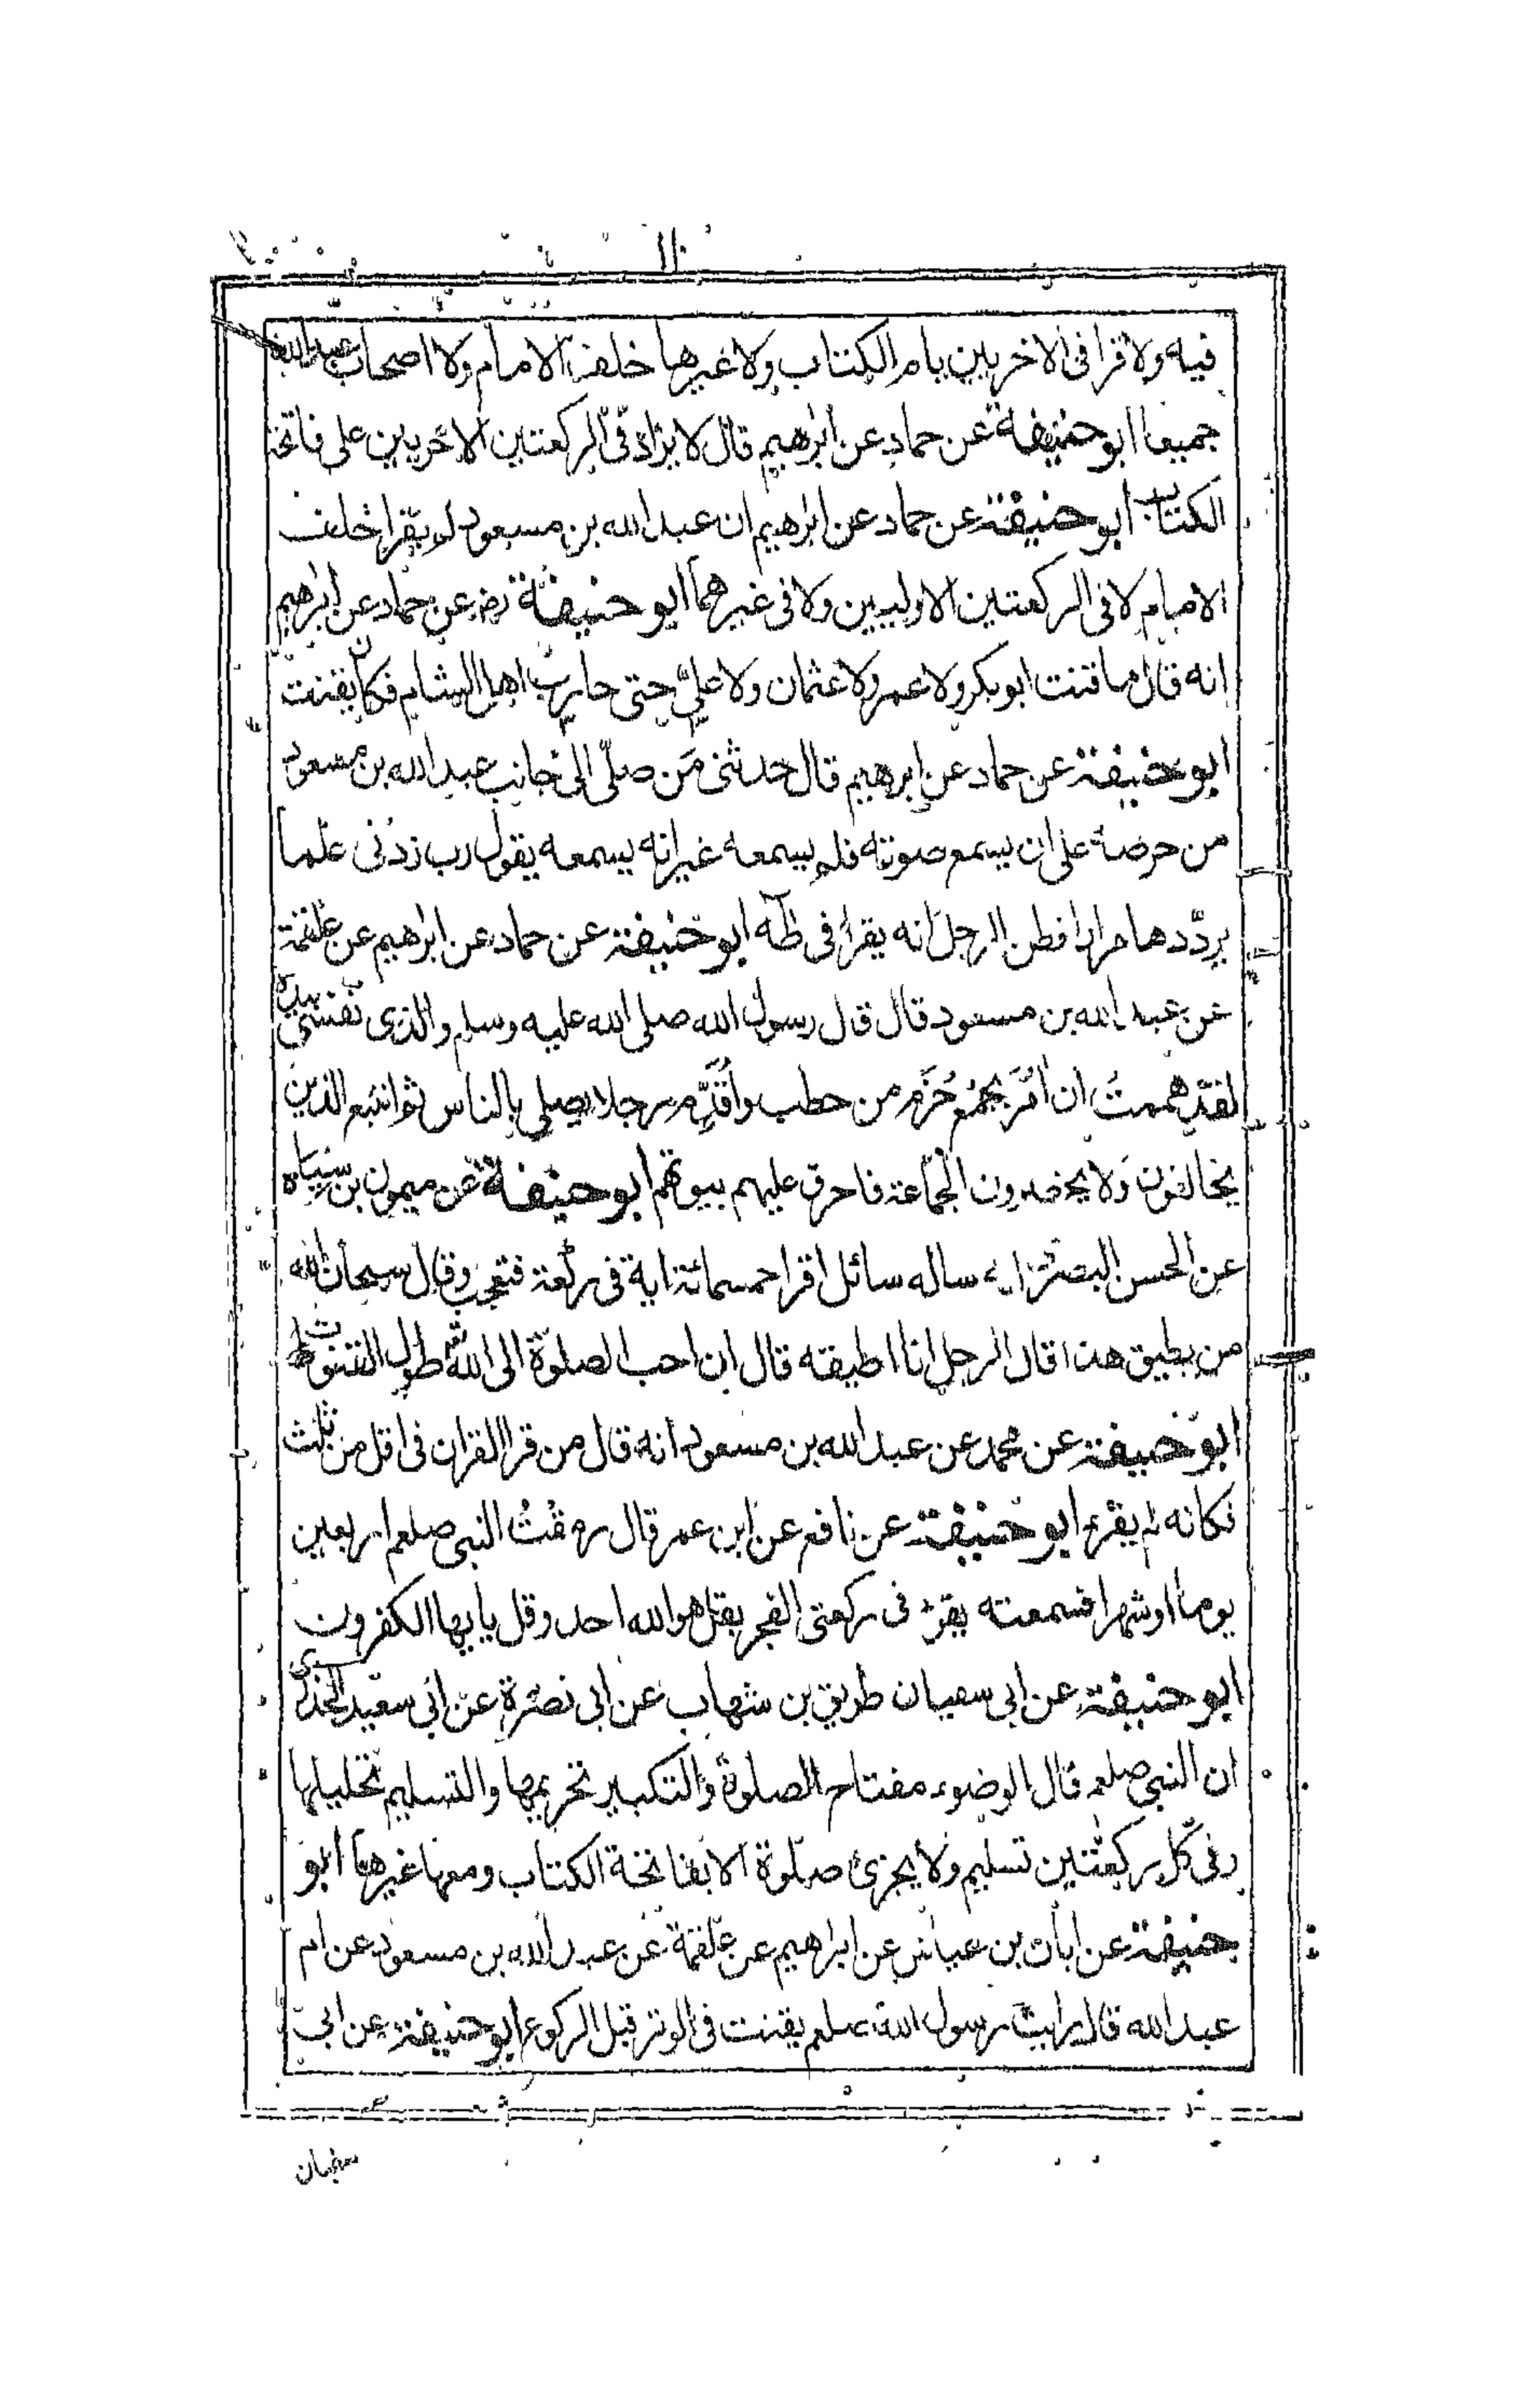 ١١
فيه ولا قرا فى الاخريين بام الكتاب ولا غيرها خلف الامام ولا اصحاب عبد الله
جميعا ابو حنيفة عن حماد عن ابرهيم قال لا يزاد فى الركعتين الاخريين على فاتحة
الكتاب ابو حنيفة عن حماد عن ابرهيم ان عبد الله بن مسعود لم يقرا خلف
الامام لا فى الركعتين الاوليين ولا فى غيرهما ابو حنيفة رض عن حماد عن ابرهيم
انه قال ما قنت ابو بكر ولا عمر ولا عثمان ولا علىّ حتى حارب اهل الشام فكان يقنت
ابو حنيفة عن حماد عن ابرهيم قال حدثنى مَن صلّى الى جانب عبد الله بن مسعود
من حرصه على ان يسمع صوته فلم يسمعه غير انه يسمعه يقول رب زدنى علما
يردّدها مرارا فظن الرجل انه يقرا فى طٰه ابو حنيفة عن حماد عن ابرهيم عن علقمة
عن عبد الله بن مسعود قال قال رسول الله صلى الله عليه وسلم والذى نفسى بيده
لقد هممتُ ان اٰمُرَ بجمع حُزَم من حطب واُقَدِّم رجلا يصلى بالناس ثم اتبع الذين
يخالفون ولا يحضرون الجماعة فاحرق عليهم بيوتهم ابو حنيفة عن ميمون بن سياه
عن الحسن البصرى انه ساله سائل اقرا خمسمائة اية فى ركعة فتعجب وقال سبحان الله
من يطيق هذا قال الرجل انا اطيقه قال ان احب الصلوة الى الله طول القنوت
ابو حنيفة عن محمد عن عبد الله بن مسعود انه قال من قرا القران فى اقل من ثلث
فكانه لم يقرء ابو حنيفة عن نافع عن ابن عمر قال رمقتُ النبى صلعم اربعين
يوما او شهرا فسمعته يقرء فى ركعتى الفجر بقل هو الله احد وقل يايها الكفرون
ابو حنيفة عن ابى سفيان طريق بن شهاب عن ابى نضرة عن ابى سعيد الخدرى
ان النبى صلعم قال الوضوء مفتاح الصلوة والتكبير تحريمها والتسليم تحليلها
وفى كل ركعتين تسليم ولا يجزئ صلوة الا بفاتحة الكتاب ومعها غيرها ابو
حنيفة عن ابان بن عياش عن ابراهيم عن علقمة عن عبد الله بن مسعود عن ام
عبد الله قال رايت رسول الله صلعم يقنت فى الوتر قبل الركوع ابو حنيفة عن ابى
سفيان